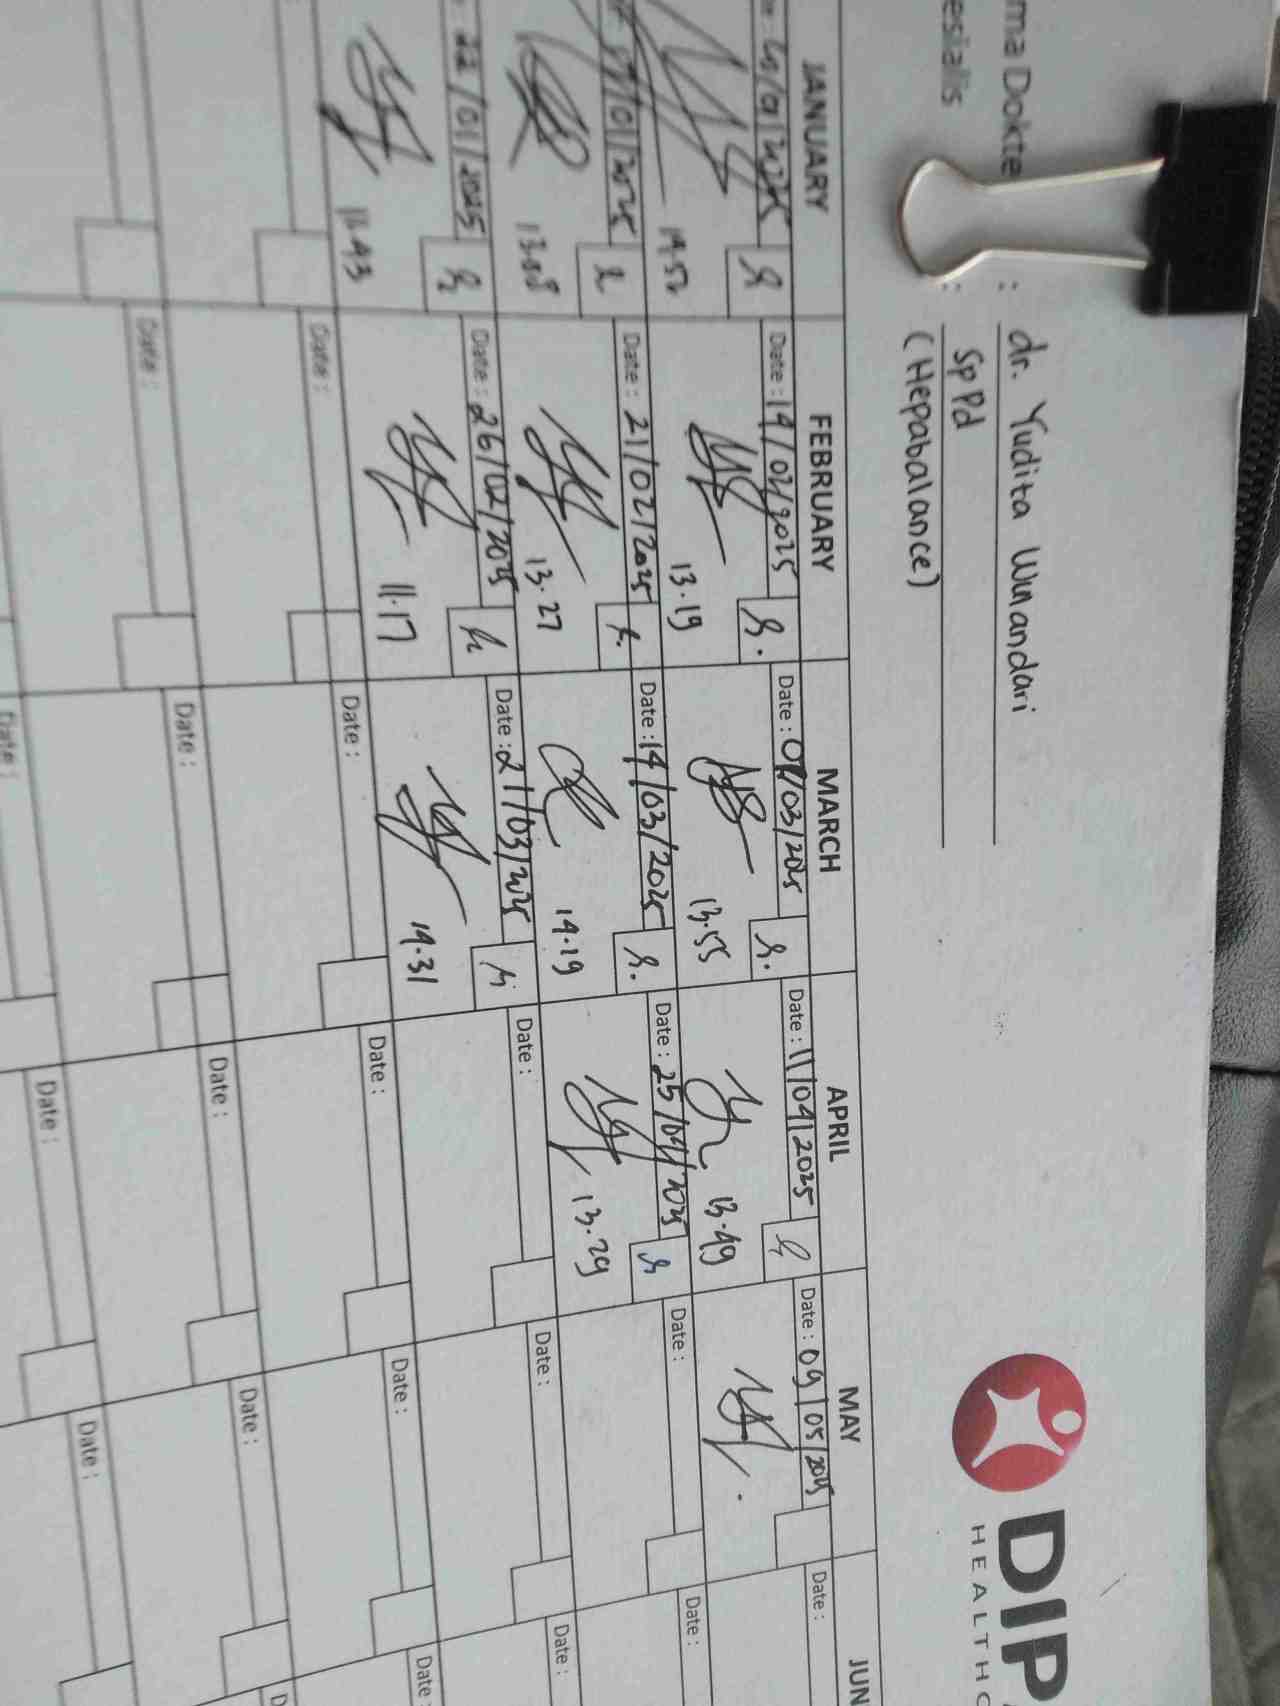 DIP
HEALTHC
ma Dokte : dr. Yudita Wunandari
esialis : SpPd
(Hepabalance)
JANUARY FEBRUARY MARCH APRIL MAY JUN
/01/2025 Date : 14/02/2025 Date : 07/03/2025 Date : 11/04/2025 Date : 09/05/2025 Date :
14.52 13.19 13.55 13.49
/01/2025 Date : 21/02/2025 Date : 14/03/2025 Date : 25/04/2025 Date : Date :
13.08 13.27 14.19 13.29
: 22/01/2025 Date : 26/02/2025 Date : 21/03/2025 Date : Date : Date :
11.43 11.17 14.31
Date : Date : Date : Date : Date :
Date : Date : Date : Date : D
Date : Date : Date :